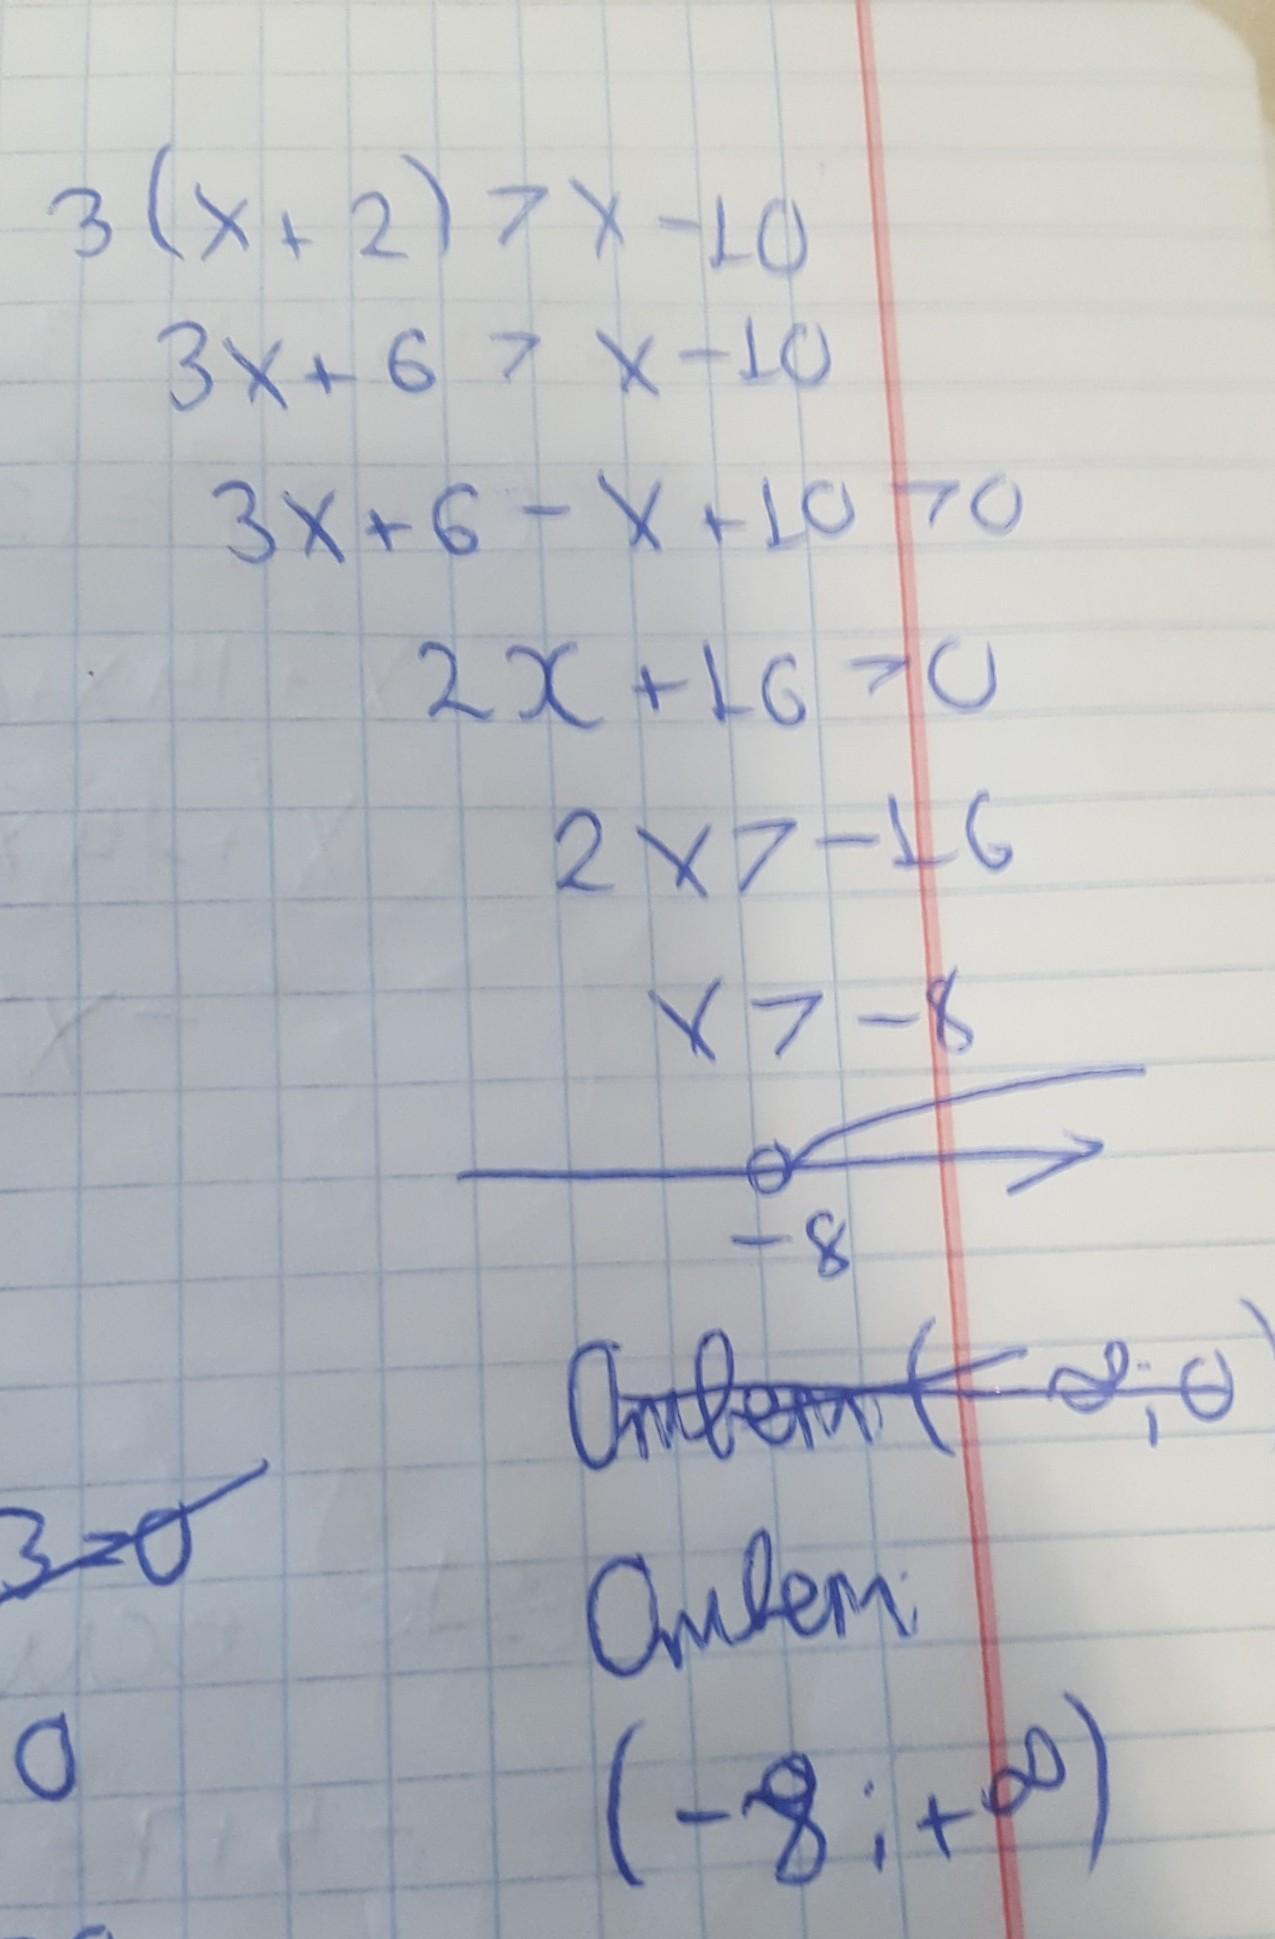 3(x+2)>x-10
3x+6>x-10
3x+6-x+10>0
2x+16>0
2x>-16
x>-8
-8
Ответ (-∞; 0)
3=0
Ответ:
0
(-8; +∞)